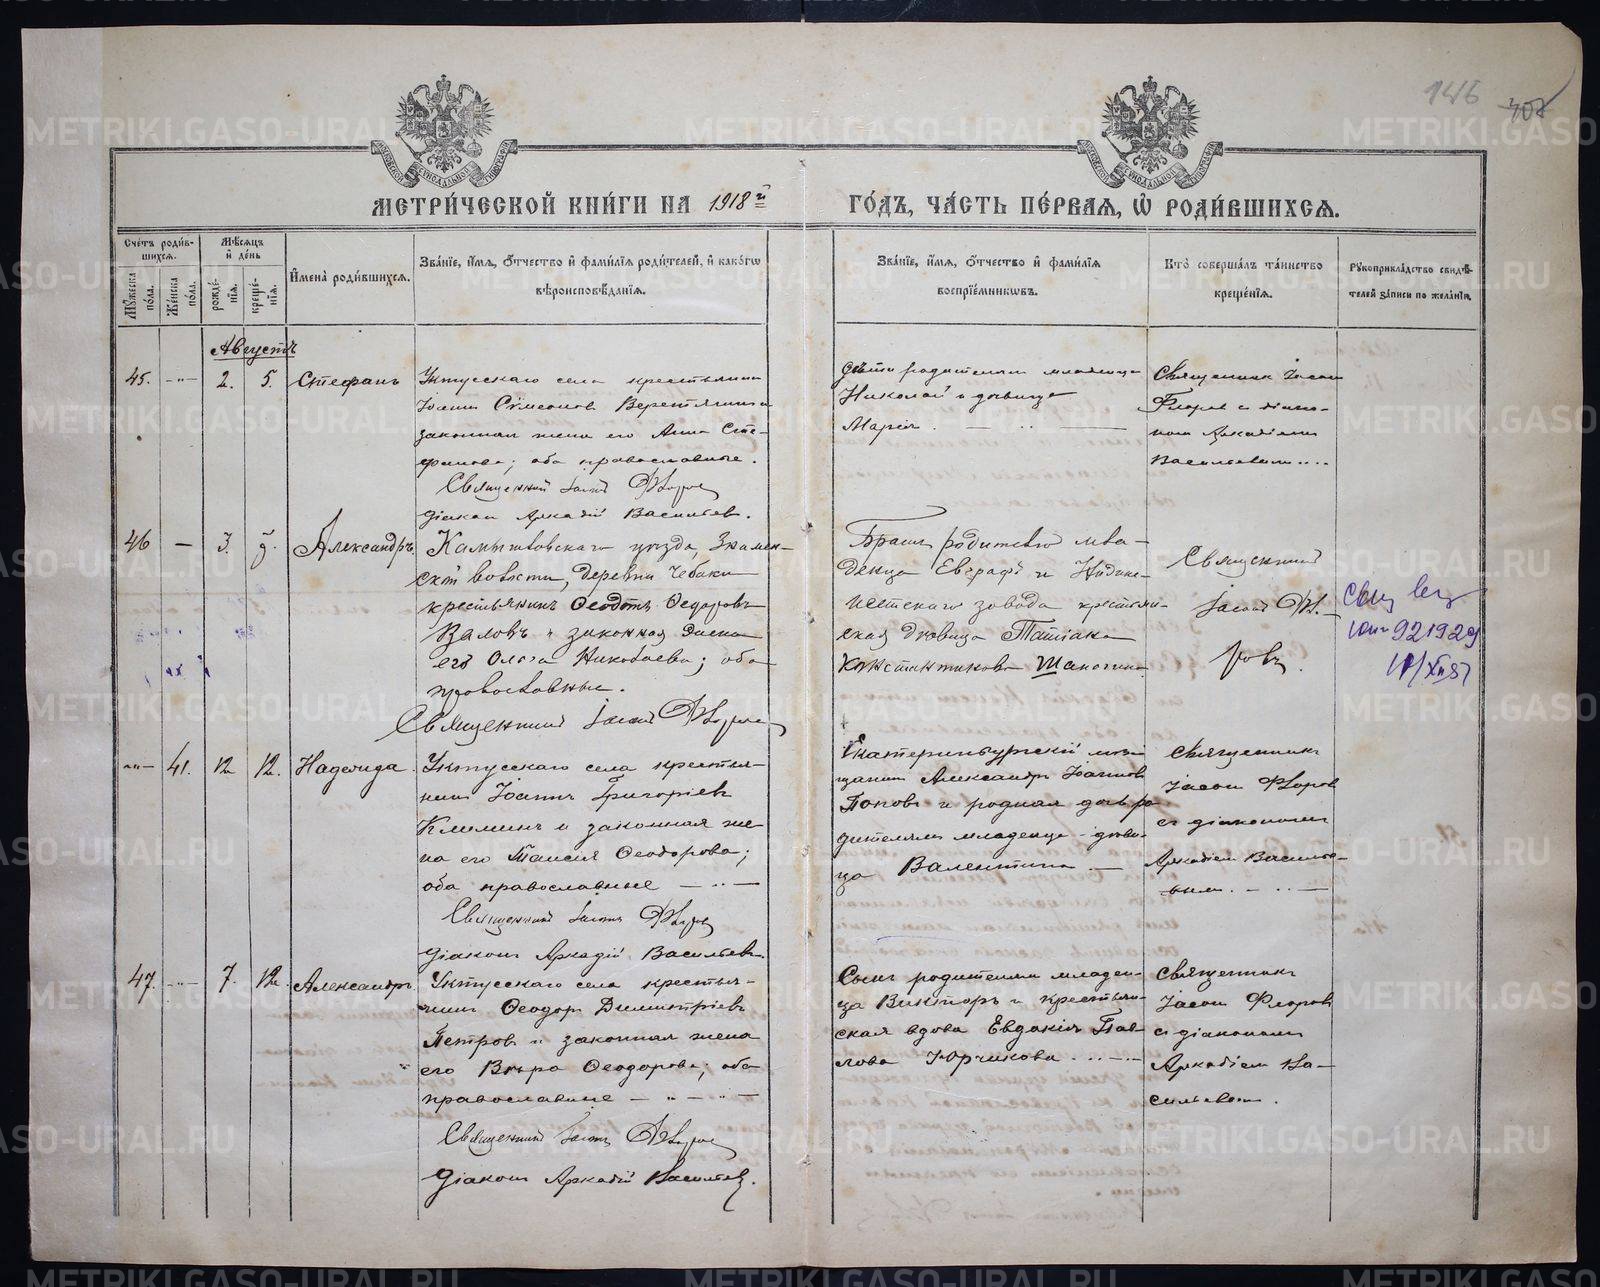 146
МЕТРИ́ЧЕСКОЙ КНИ́ГИ НА 1918й ГО́ДЪ, ЧА́СТЬ ПЕ́РВАЯ, Ѡ РОДИ́ВШИХСЯ.
Сче́тъ роди́в-
шихся.
Мꙋ́жеска по́ла.
Же́нска по́ла.
Мѣ́сяцъ и де́нь
рожде́нія.
креще́нія.
И҆мена̀ роди́вшихся.
Зва́ніе, и҆́мя, ѻ҆́тчество и҆ фами́лія роди́телей, и҆ како́гѡ
вѣроисповѣ́данія.
Зва́ніе, и҆́мя, ѻ҆́тчество и҆ фами́лія
воспріе́мникѡвъ.
Кто̀ соверша́лъ та́инство
креще́нія.
Рꙋкоприкла́дство свидѣ́-
телей за́писи по жела́нію.
Августъ
45. 2. 5. Стефанъ
Уктусскаго села крестьянинъ
Іоаннъ Сѷмеоновъ Веретенниковъ
законная жена его Анна Сте-
фанова; оба православные.
Священникъ Іасонъ Флоровъ
діаконъ Аркадій Васильевъ.
дѣти родителямъ младенца
Николай и дѣвица
Марія.
Священникъ Іасонъ
Флоровъ съ діако-
номъ Аркадіемъ
Васильевымъ....
46 — 3. Александръ
Камышловскаго уѣзда, Знамен-
ской волости, деревни Чебаки
крестьянинъ Ѳеодотъ Ѳедоровъ
Валовъ и законная жена
его Ольга Николаева; оба
православные.
Священникъ Іасонъ Флоровъ
Братъ родителю мла-
денца Евграфъ и
завода крестьян-
ская дѣвица Татіана
Константинова Шаногина
Священникъ
Іасонъ Фл.
ровъ.
1929
11/XII 57
41. 12 12. Надежда.
Уктусскаго села крестья-
нинъ Іоаннъ Григоріевъ
Климинъ и законная же-
на его Таисія Ѳеодорова;
оба православные
Священникъ Іасонъ Флоровъ
діаконъ Аркадій Васильевъ.
Екатеринбургскій мѣ-
щанинъ Александръ Іоанновъ
Поповъ и родная дочь ро-
дителямъ младенца - дѣви-
ца Валентина.
Священникъ
Іасонъ Флоровъ
съ діакономъ
Аркадіемъ Василье-
вымъ.
47. 7. 12. Александръ.
Уктусскаго села крестья-
нинъ Ѳеодоръ Димитріевъ
Петровъ и законная жена
его Вѣра Ѳеодорова; оба
православные
Священникъ Іасонъ Флоровъ
Діаконъ Аркадій Васильевъ.
Сынъ родителямъ младен-
ца Викторъ и крестьян-
ская вдова Евдокія Пав-
лова Юрчикова.
Священникъ
Іасонъ Флоровъ
съ діакономъ
Аркадіемъ Ва-
сильевымъ.
METRIKI.GASO-URAL.RU